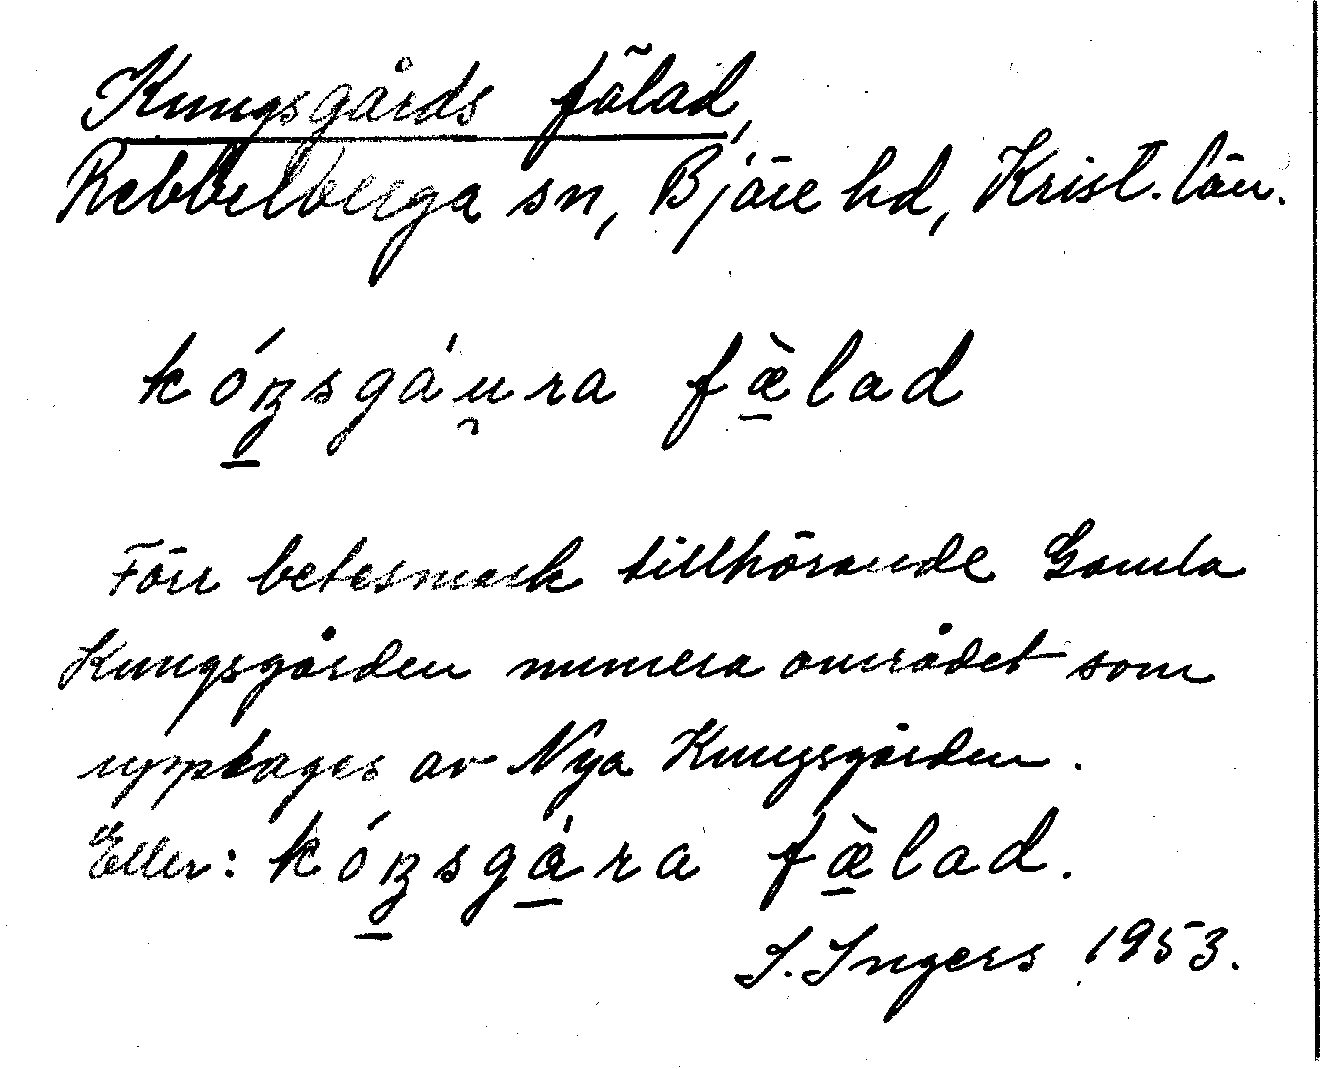 Kungsgårds fälad,
Rebbelberga sn, Bjäre hd, Krist. län.
kóŋsgáu̯ra fæ̀lad
Förr betesmark tillhörande Gamla
Kungsgården numera området som
upptages av Nya Kungsgården.
Eller: kóŋsgára fæ̀lad.
I. Ingers 1953.